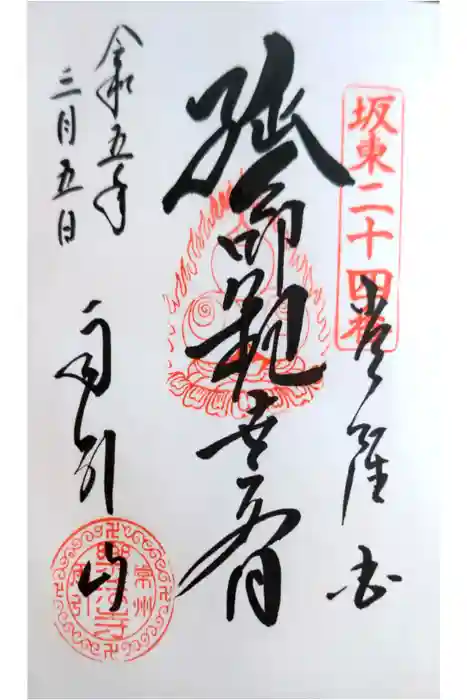 坂東二十四番
延命観世音
令和五年
三月五日
雨引山
常州
樂法寺
雨引